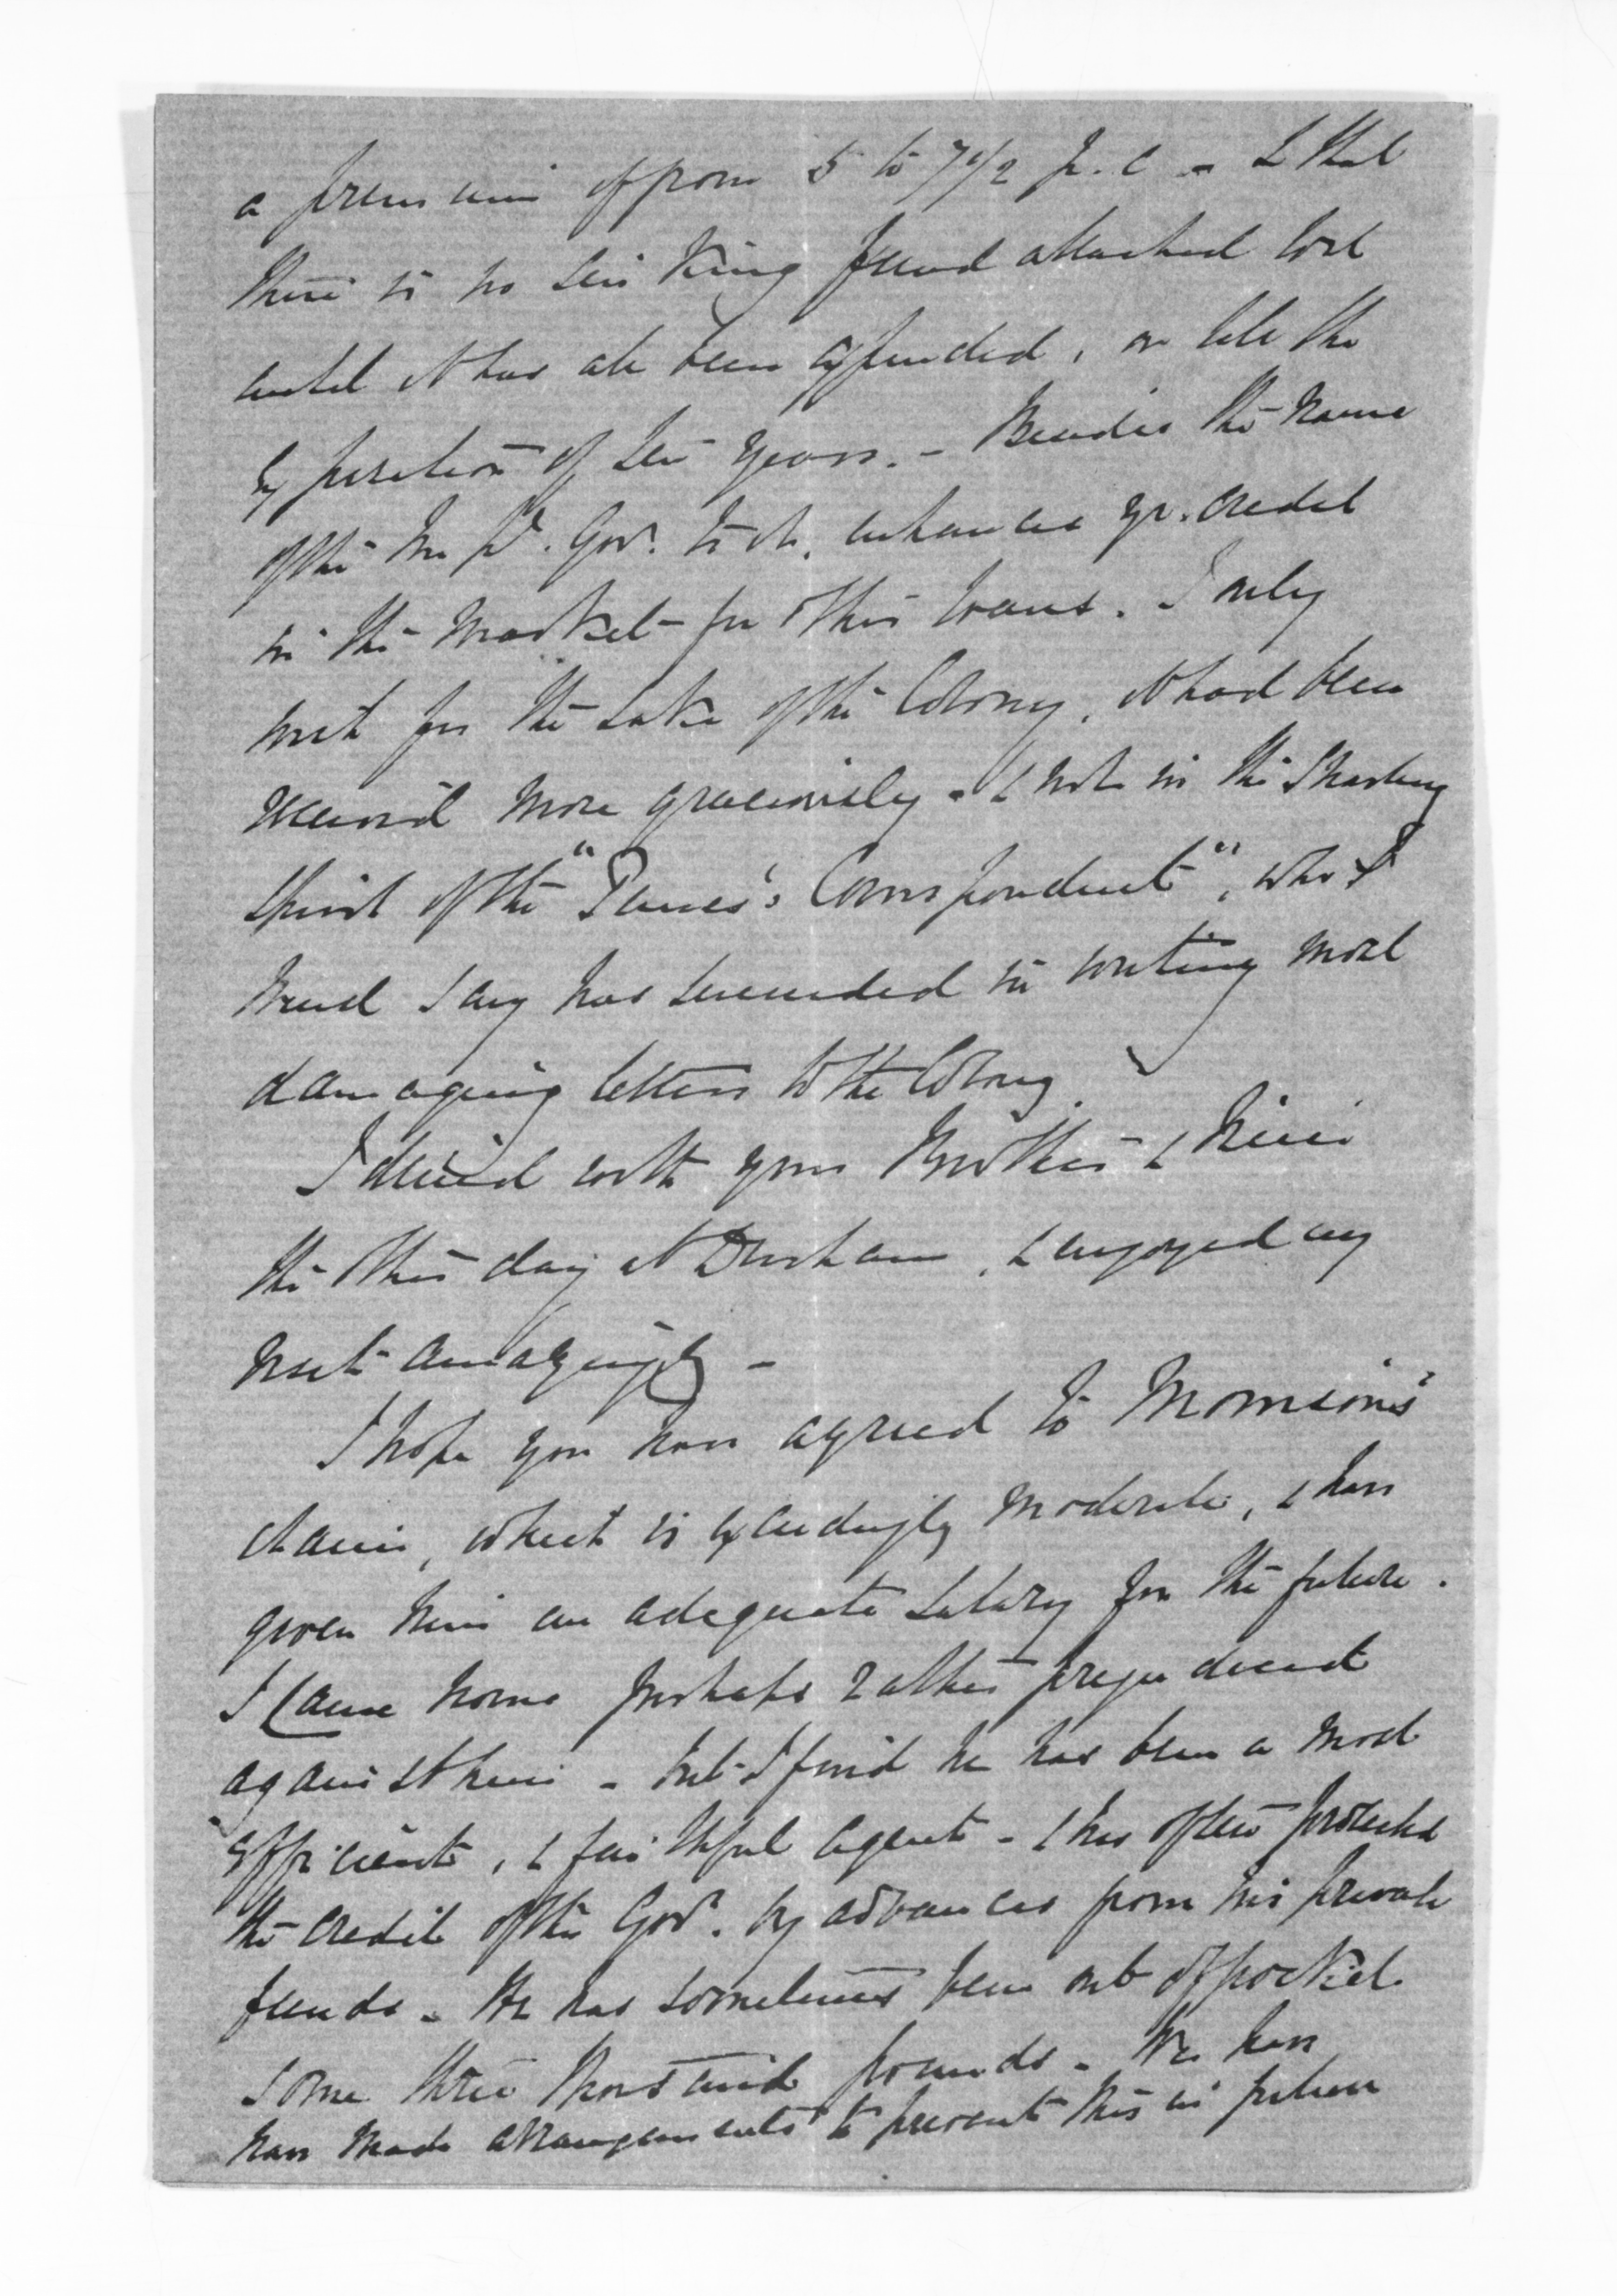 a premium of from 5 to 7 1/2 p. c - & that
there is no sinking fund attached to it
until it has all been expended, or till the
expiration of ten years. - Besides the name
of the Im pl. Govt. to it, enhances yr. credit
in the market - for other loans. I only
wish for the sake of the Colony, it had been
received more graciously - & not in the snarling
spirit of the "Times's Correspondent", who I
must say has succeeded in writing most
damaging letters to the Colony.
I dined with your Brother & Niece
the other day at Durham, & enjoyed my
visit amazingly -
I hope you have agreed to Morrison's
claim, which is exceedingly moderate, & have
given him an adequate salary for the future.
I came home perhaps rather prejudiced
against him - but I find he has been a most
efficient, & faithful agent - & has often protected
the credit of the Govt. by advances from his private
funds - He has sometimes been out of pocket
some three thousand pounds - We have
have made arrangements to prevent this in future